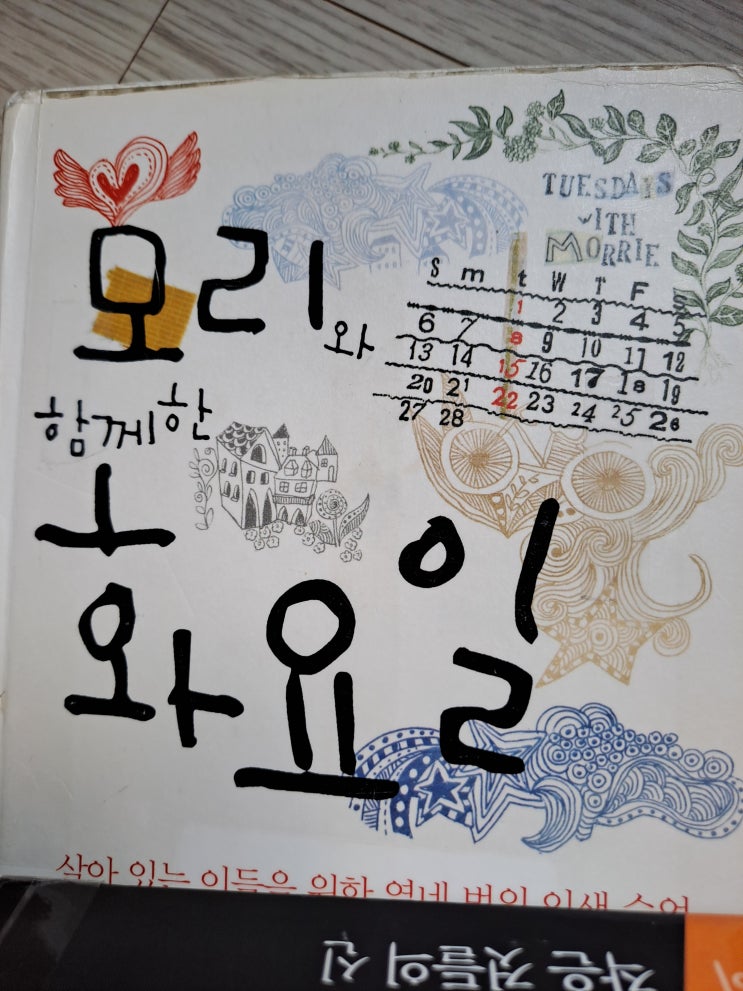 TUESDAYS
WITH
MORRIE
모리와
함께한
화요일
S m t W T F S
1 2 3 4 5
6 7 8 9 10 11 12
13 14 15 16 17 18 19
20 21 22 23 24 25 26
27 28
살아 있는 이들을 위한 열네 번의 인생 수업
작은 것들의 신